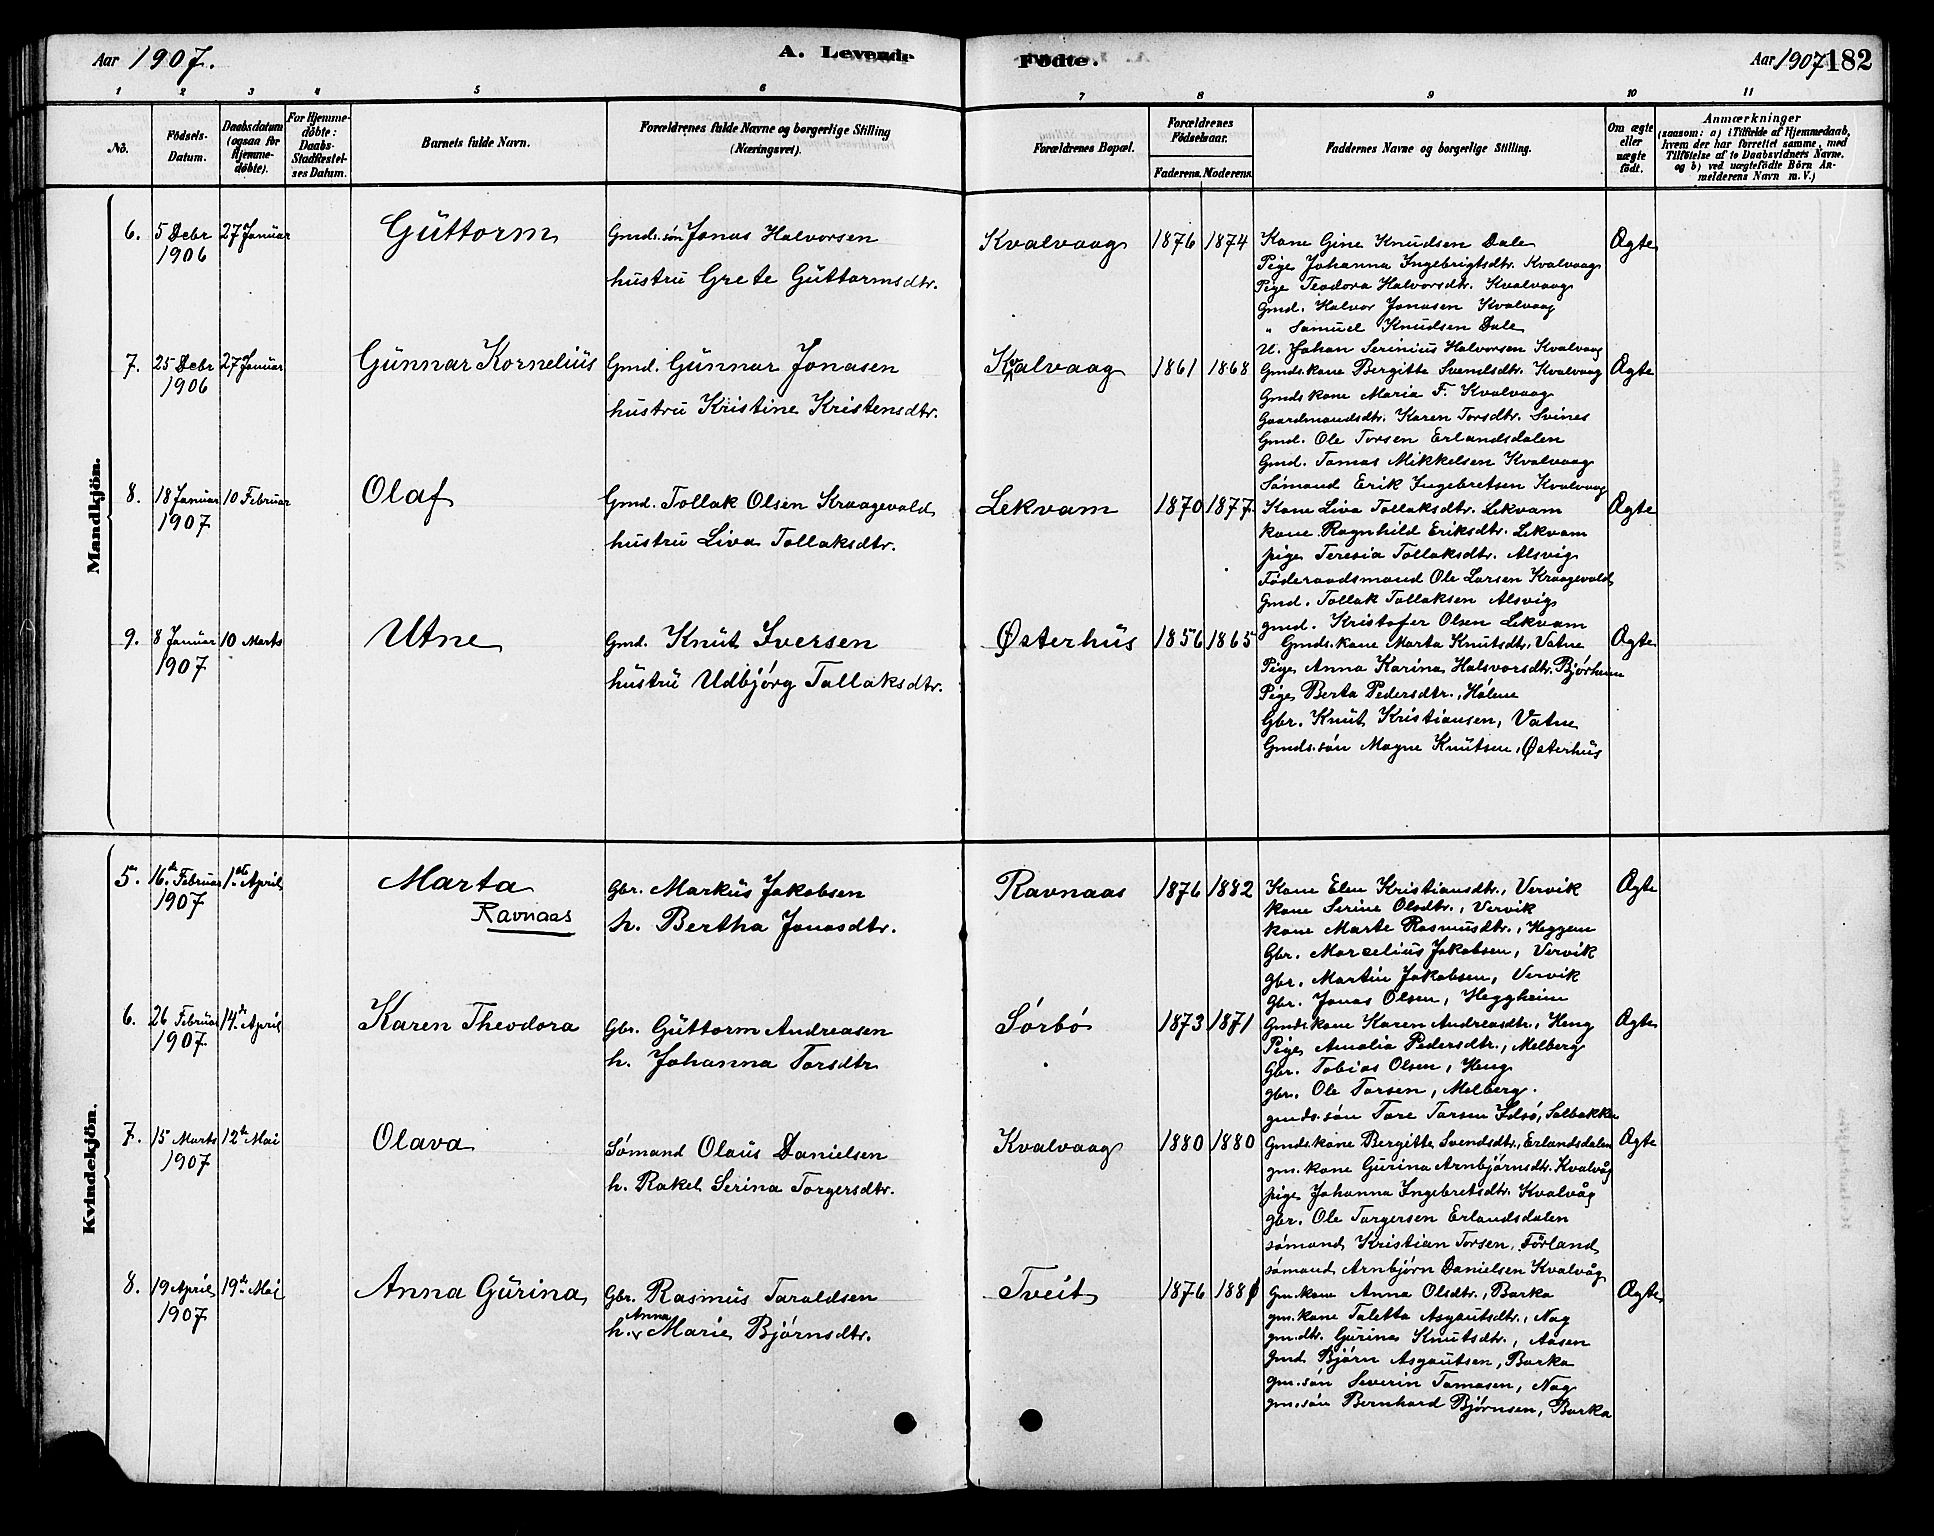 Aar 1907. A. Levende Fødte. Aar 1907 182
1 2 3 4 5 6 7 8 9 10 11
No.
Födsels-Datum.
Daabsdatum (ogsaa for Hjemme-döbte).
For Hjemme-döbte: Daabs-Stadfæstel-ses Datum.
Barnets fulde Navn.
Forældrenes fulde Navne og borgerlige Stilling (Næringsvei).
Forældrenes Bopæl.
Forældrenes Födselsaar.
Faderens. Moderens.
Faddernes Navne og borgerlige Stilling.
Om ægte eller uægte födt.
Anmærkninger
(saasom: a) i Tilfælde af Hjemmedaab, hvem der har forrettet samme, med Tilføielse af to Daabsvidners Navne, og b) ved uægtefödte Börn An-melderens Navn m. V.)
Mandkjön.
6. 5 Debr 27 Januar Guttorm Gmds.søn Jonas Halvorsen Kvalvaag 1876 1874 Kone Gine Knudsen Dale Ægte
1906 hustru Grete Guttormsdtr. Pige Johanna Ingebrigtsdtr. Kvalvaag
Pige Teodora Halvorsdtr. Kvalvaag
Gmd. Halvor Jonasen Kvalvaag
" Samuel Knudsen Dale
U. Johan Serinius Halvorsen Kvalvaag
7. 25 Debr 27 Januar Gunnar Kornelius Gmd. Gunnar Jonasen Kvalvaag 1861 1868 Gmds.kone Bergitte Svendsdtr. Kvalvaag Ægte
1906 hustru Kristine Kristensdtr. Gmds kone Maria F. Kvalvaag
Gaardmandsdtr. Karen Torsdtr. Svines
Gmd. Ole Torsen Erlandsdalen
Gmd. Tomas Mikkelsen Kvalvaag
Sømand Erik Ingebretsen Kvalvaag
8. 18 Januar 10 Februar Olaf Gmd. Tollak Olsen Kraagevold Lekvam 1870 1877. Kone Liva Tollaksdtr. Lekvam Ægte
1907 hustru Liva Tollaksdtr. kone Ragnhild Eriksdtr. Lekvam
pige Teresia Tollaksdtr. Alsvig
Føderaadsmand Ole Larsen Kraagevold
Gmd. Tollak Tollaksen Alsvig
gmd. Kristofer Olsen Lekvam
9. 8 Januar 10 Marts Utne Gmd. Knut Iversen Østerhus 1856 1865 Gmds.kone Marta Knutsdtr, Vatne Ægte
1907 hustru Udbjørg Tollaksdtr. Pige Anna Karina Halsvorsdtr. Bjørheim
Pige Berta Pedersdtr., Holene
Gbr. Knut Kristiansen, Vatne
Gmds.søn Magne Knutsen, Østerhus
Kvindekjön.
5. 16de Februar 1ste April Marta Gbr. Markus Jakobsen Ravnaas 1876 1882 Kone Elen Kristiansdtr., Vervik Ægte
1907 Ravnaas h. Bertha Jonasdtr. kone Serine Olsdtr., Vervik
kone Marte Rasmusdtr., Heggem
Gbr. Marcelius Jakobsen, Vervik
gbr. Martin Jakobsen, Vervik
Gbr. Jonas Olsen, Heggheim
6. 26 Februar 14de April Karen Theodora Gbr. Guttorm Andreasen Sørbø 1873 1871 Gmds.kone Karen Andreasdtr., Heng Ægte
1907. h. Johanna Torsdtr Pige Amalia Pedersdtr., Melberg
Gbr. Tobias Olsen, Heng
gbr. Ole Torsen, Melberg.
gmds.søn Tore Torsen Idsø, Solbakken
7. 15 Marts 12te Mai Olava Sømand Olaus Danielsen Kvalvaag 1880 1880 Gmds.kone Bergitte Svendsdtr, Erlandsdalen Ægte
1907 h. Rakel Serina Torgersdtr. gm.kone Gurina Arnbjørnsdtr. Kvalvåg
pige Johanna Ingebretsdtr. Kvalvåg
gbr. Ole Torgersen Erlandsdalen
sømand Kristian Torsen, Förland
sømand Arnbjørn Danielsen Kvalvåg
8. 19 April 19de Mai Anna Gurina Gbr. Rasmus Taraldsen Tveit 1876 1880 Gm.kone Anna Olsdtr., Barka Ægte
1907 h. Anna Marie Bjørnsdtr. gm.kone Taletta Asgautsdtr., Nag
gm.dtr. Gurina Knutsdtr., Aasen
Gmd Bjørn Asgautsen, Barka
gm.søn Severin Tomasen, Nag
gm.søn Bernhard Bjørnsen, Barka